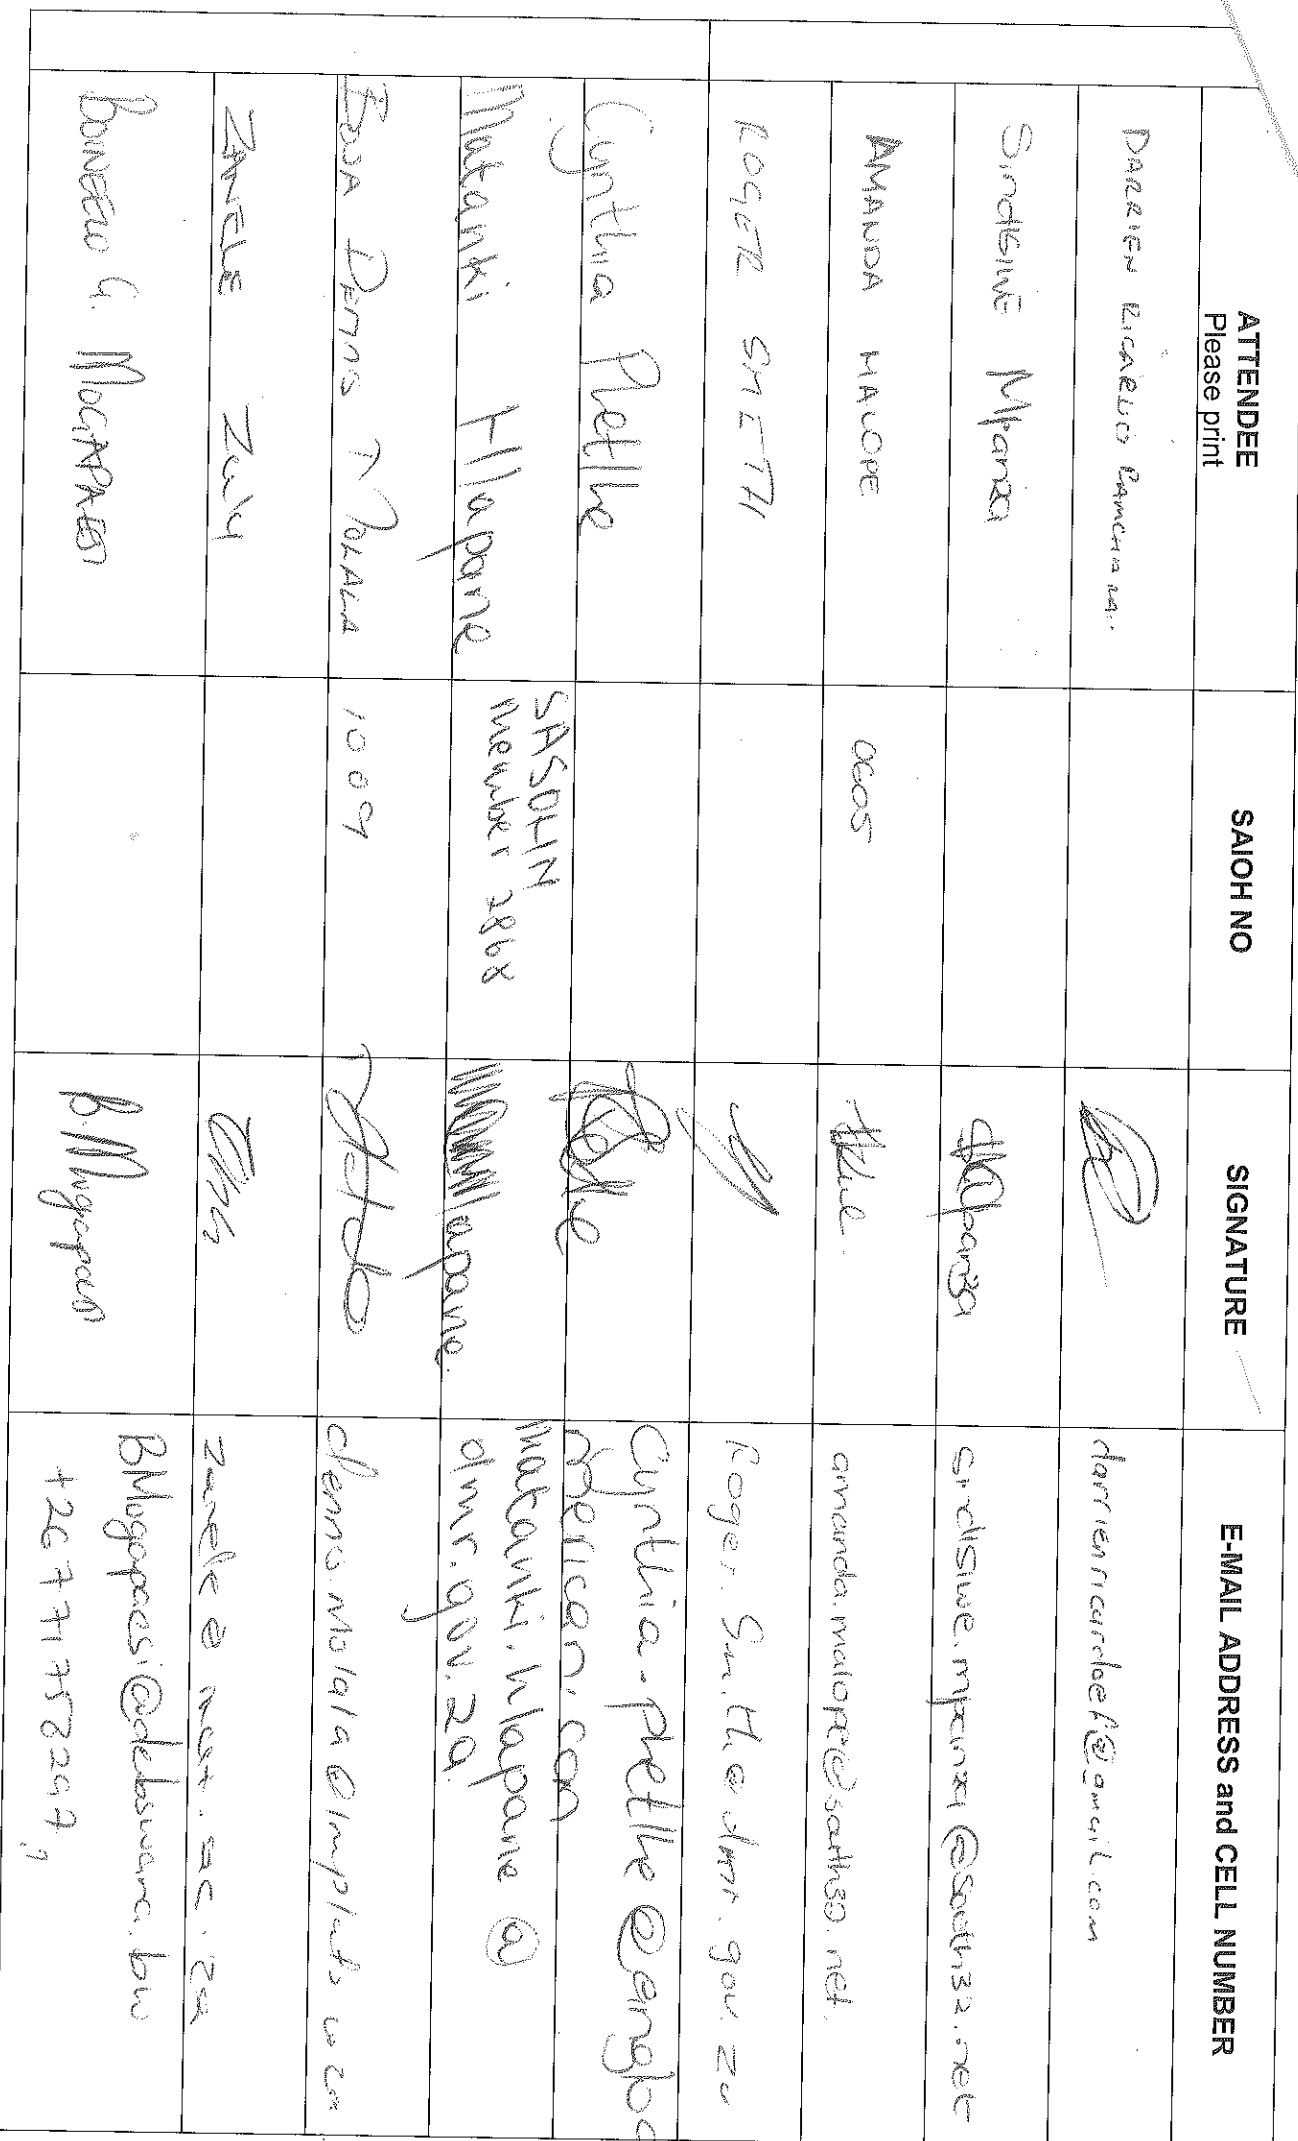 ATTENDEE
Please print
SAIOH NO
SIGNATURE
E-MAIL ADDRESS and CELL NUMBER
DARRIEN RICARDO
darrienricardoef@gmail.com
Sindisiwe Mpanza
Mpanza
sindisiwe.mpanza@south32.net
AMANDA MALOPE
0605
amanda.malope@south32.net
ROGER SMITH
Roger.Smith@dmr.gov.za
Cynthia Phetlhe
Cynthia.phetlhe@angloa
merican.com
Matanki Hlapane
SASOHN
member 2868
Hlapane.
matanki.hlapane@
dmr.gov.za.
Dennis Molala
1009
dennis.molala@implats.co.za
ZANELE Zulu
zanele@
BOINEELO G. MOGAPAESI
B.Mogapaesi
BMogapaesi@debswana.bw
+267